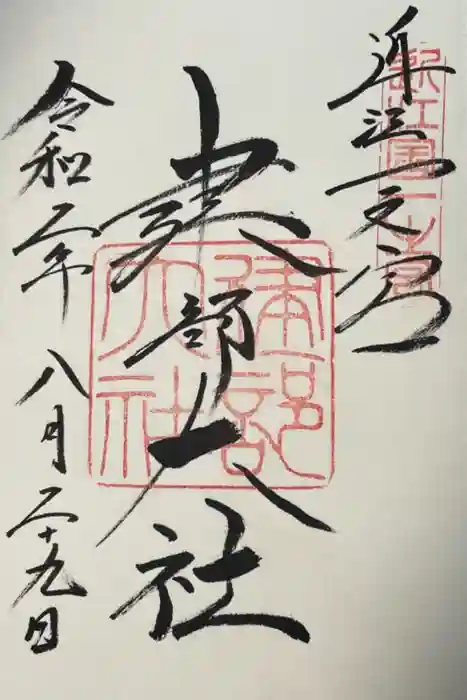 近江一之宮
近江国一之宮
建部大社
建部大社
令和二年 八月二十九日